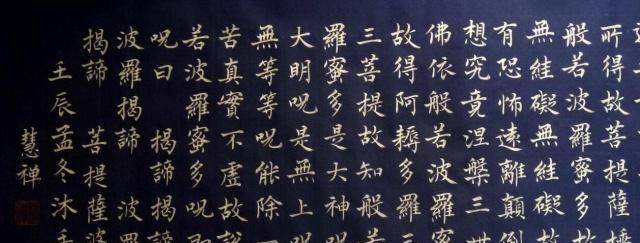 所得故菩提薩埵
般若波羅蜜多
無絓礙無絓礙故
有恐怖遠離顛倒
想究竟涅槃三世
佛依般若波羅蜜
故得阿耨多羅三
三菩提故知般若
羅蜜多是大神呪
大明呪是無上呪
無等等呪能除
苦真實不虛故說
若波羅蜜多呪即
呪曰 揭諦揭諦
波羅揭諦 波羅
揭諦 菩提薩婆
壬辰孟冬沐手
慧禅